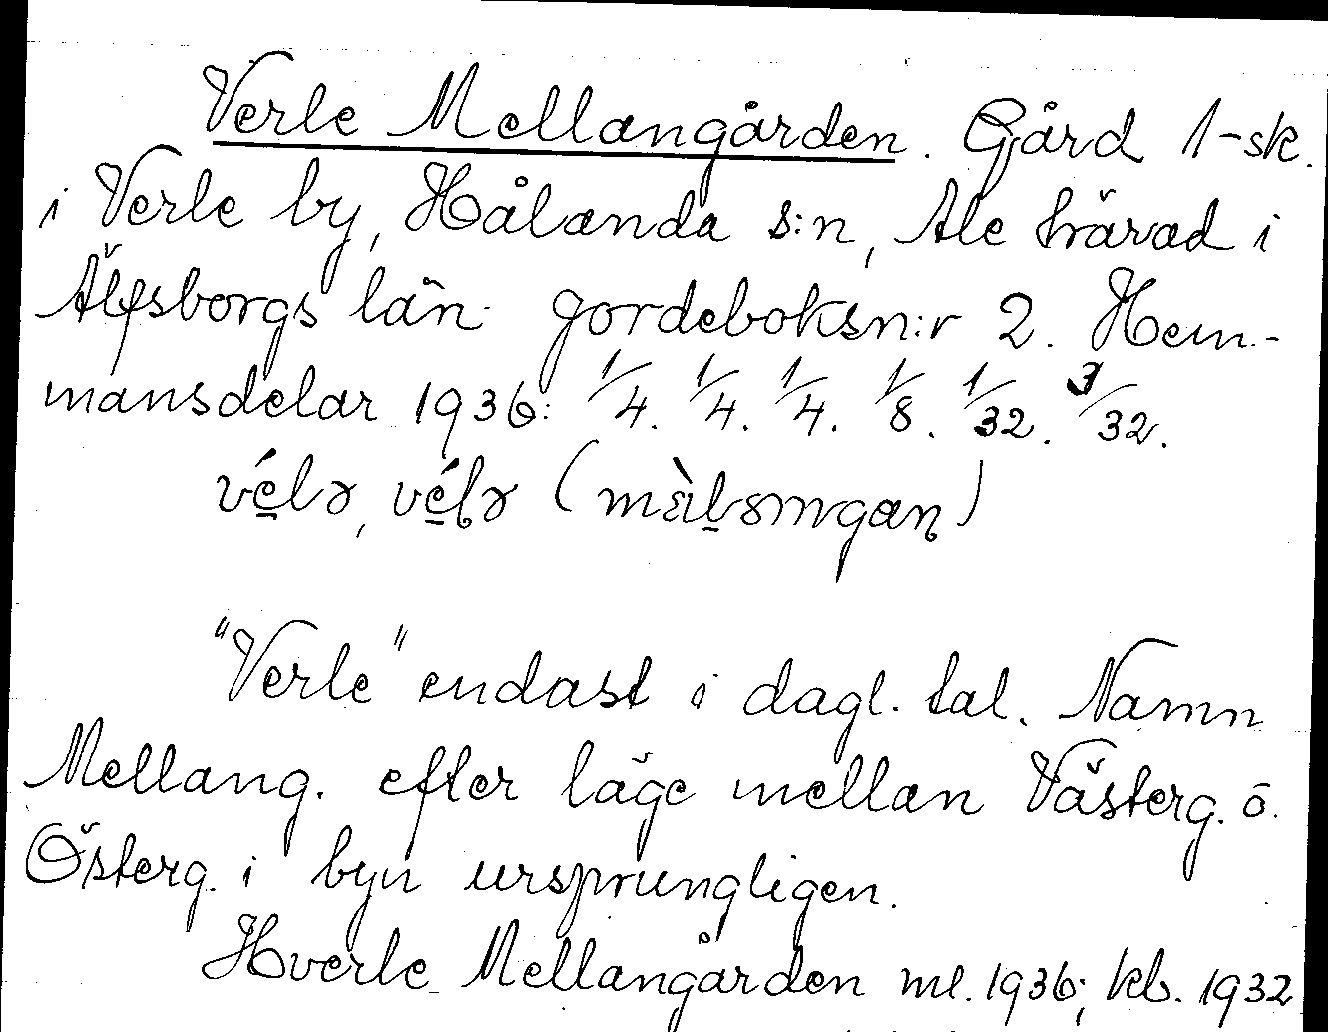 Verle Mellangården. Gård 1-sk.
i Verle by, Hålanda s:n, Ale härad i
Älfsborgs län. Jordeboksn:r 2. Hem-
mansdelar 1936: 1/4. 1/4. 1/4. 1/8. 1/32. 3/32.
"Verle" endast i dagl. tal. Namn
Mellang. efter läge mellan Västerg. o.
Österg. i byn ursprungligen.
Hverle Mellangården ml. 1936; kb. 1932